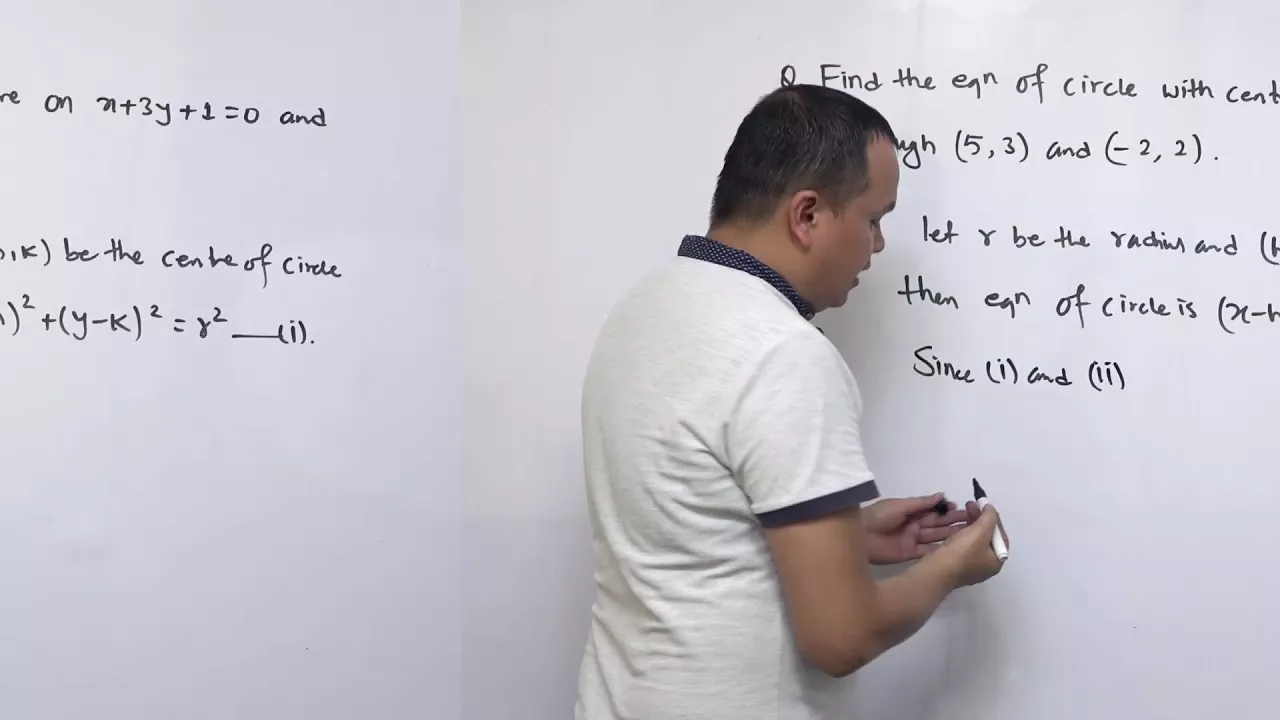 re on x+3y+1=0 and
,k) be the centre of circle
)² +(y-k)² = r² —(i).
Q. Find the eqn of circle with cent
ugh (5,3) and (-2, 2).
let r be the radius and (h
then eqn of circle is (x-h
Since (i) and (ii)